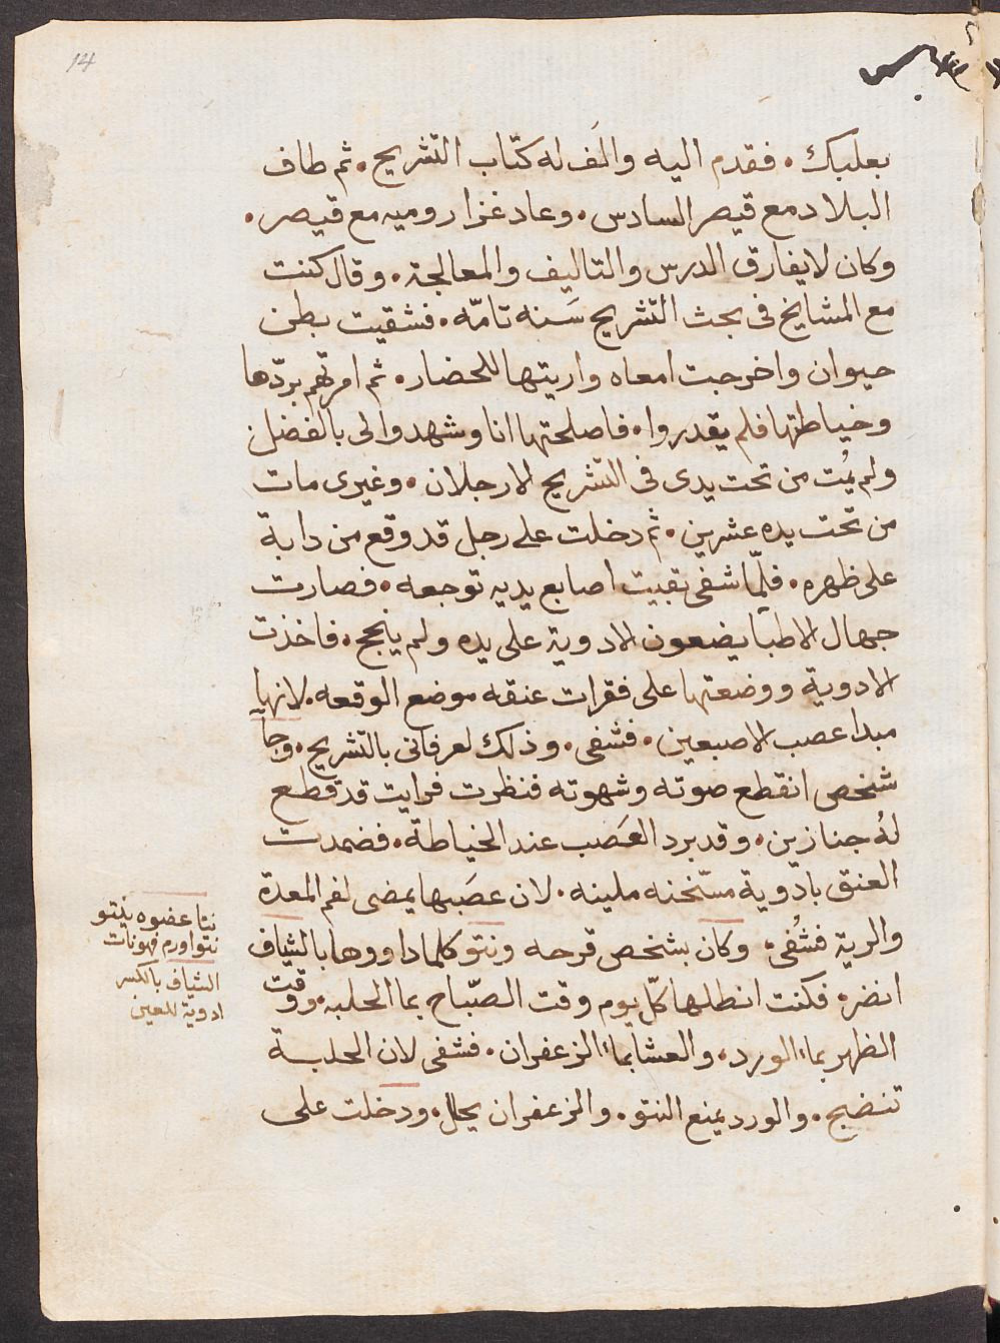 14
بعلبك . فقدم اليه والف له كتاب التشريح . ثم طاف
البلاد مع قيصر السادس . وعاد غزا روميه مع قيصر .
وكان لا يفارق الدرس والتاليف والمعالجة . وقال كنت
مع المشايخ فى بحث التشريح سَنه تامّه . فشقيت بطن
حيوان واخرجت امعاه واريتها للحضار . ثم امرتهم بردّها
وخياطتها فلم يقدروا . فاصلحتها انا وشهدوا لى بالفضل
ولم يمُت من تحت يدى فى التشريح الا رجلان . وغيرى مات
من تحت يده عشرين . ثم دخلت على رجل قد وقع من دابة
على ظهره . فلمّا شفى بقيت اصابع يديه توجعه . فصارت
جهال الاطبا يضعون الادوية على يده ولم ينجح . فاخذت
الادوية ووضعتها على فقرات عنقه موضع الوقعه . لانها
مبدا عصب الاصبعين . فشفى . وذلك لعرفانى بالتشريح . وجا
شخص انقطع صوته وشهوته فنظرت فرايت قد قطع
لهُ جنازين . وقد برد العَصب عند الخياطة . فضمدت
العنق بادوية مسّخنه ملينه . لان عصَبها يمضى لفم المعدة
والرية فشُفى . وكان بشخص قرحه ونتو كلما داووها بالشياف
انضره . فكنت انطلها كلّ يوم وقت الصّباح بما الحلبه . ووقت
الظهر بماء الورد . والعشا بماء الزعفران . فشفى لان الحلبة
تنضج . والورد يمنع النتو . والزعفران يحلل . ودخلت على
نتا عضوه ينتو
نتوا ورم فهو نات
الشياف بالكسر
ادوية للعين